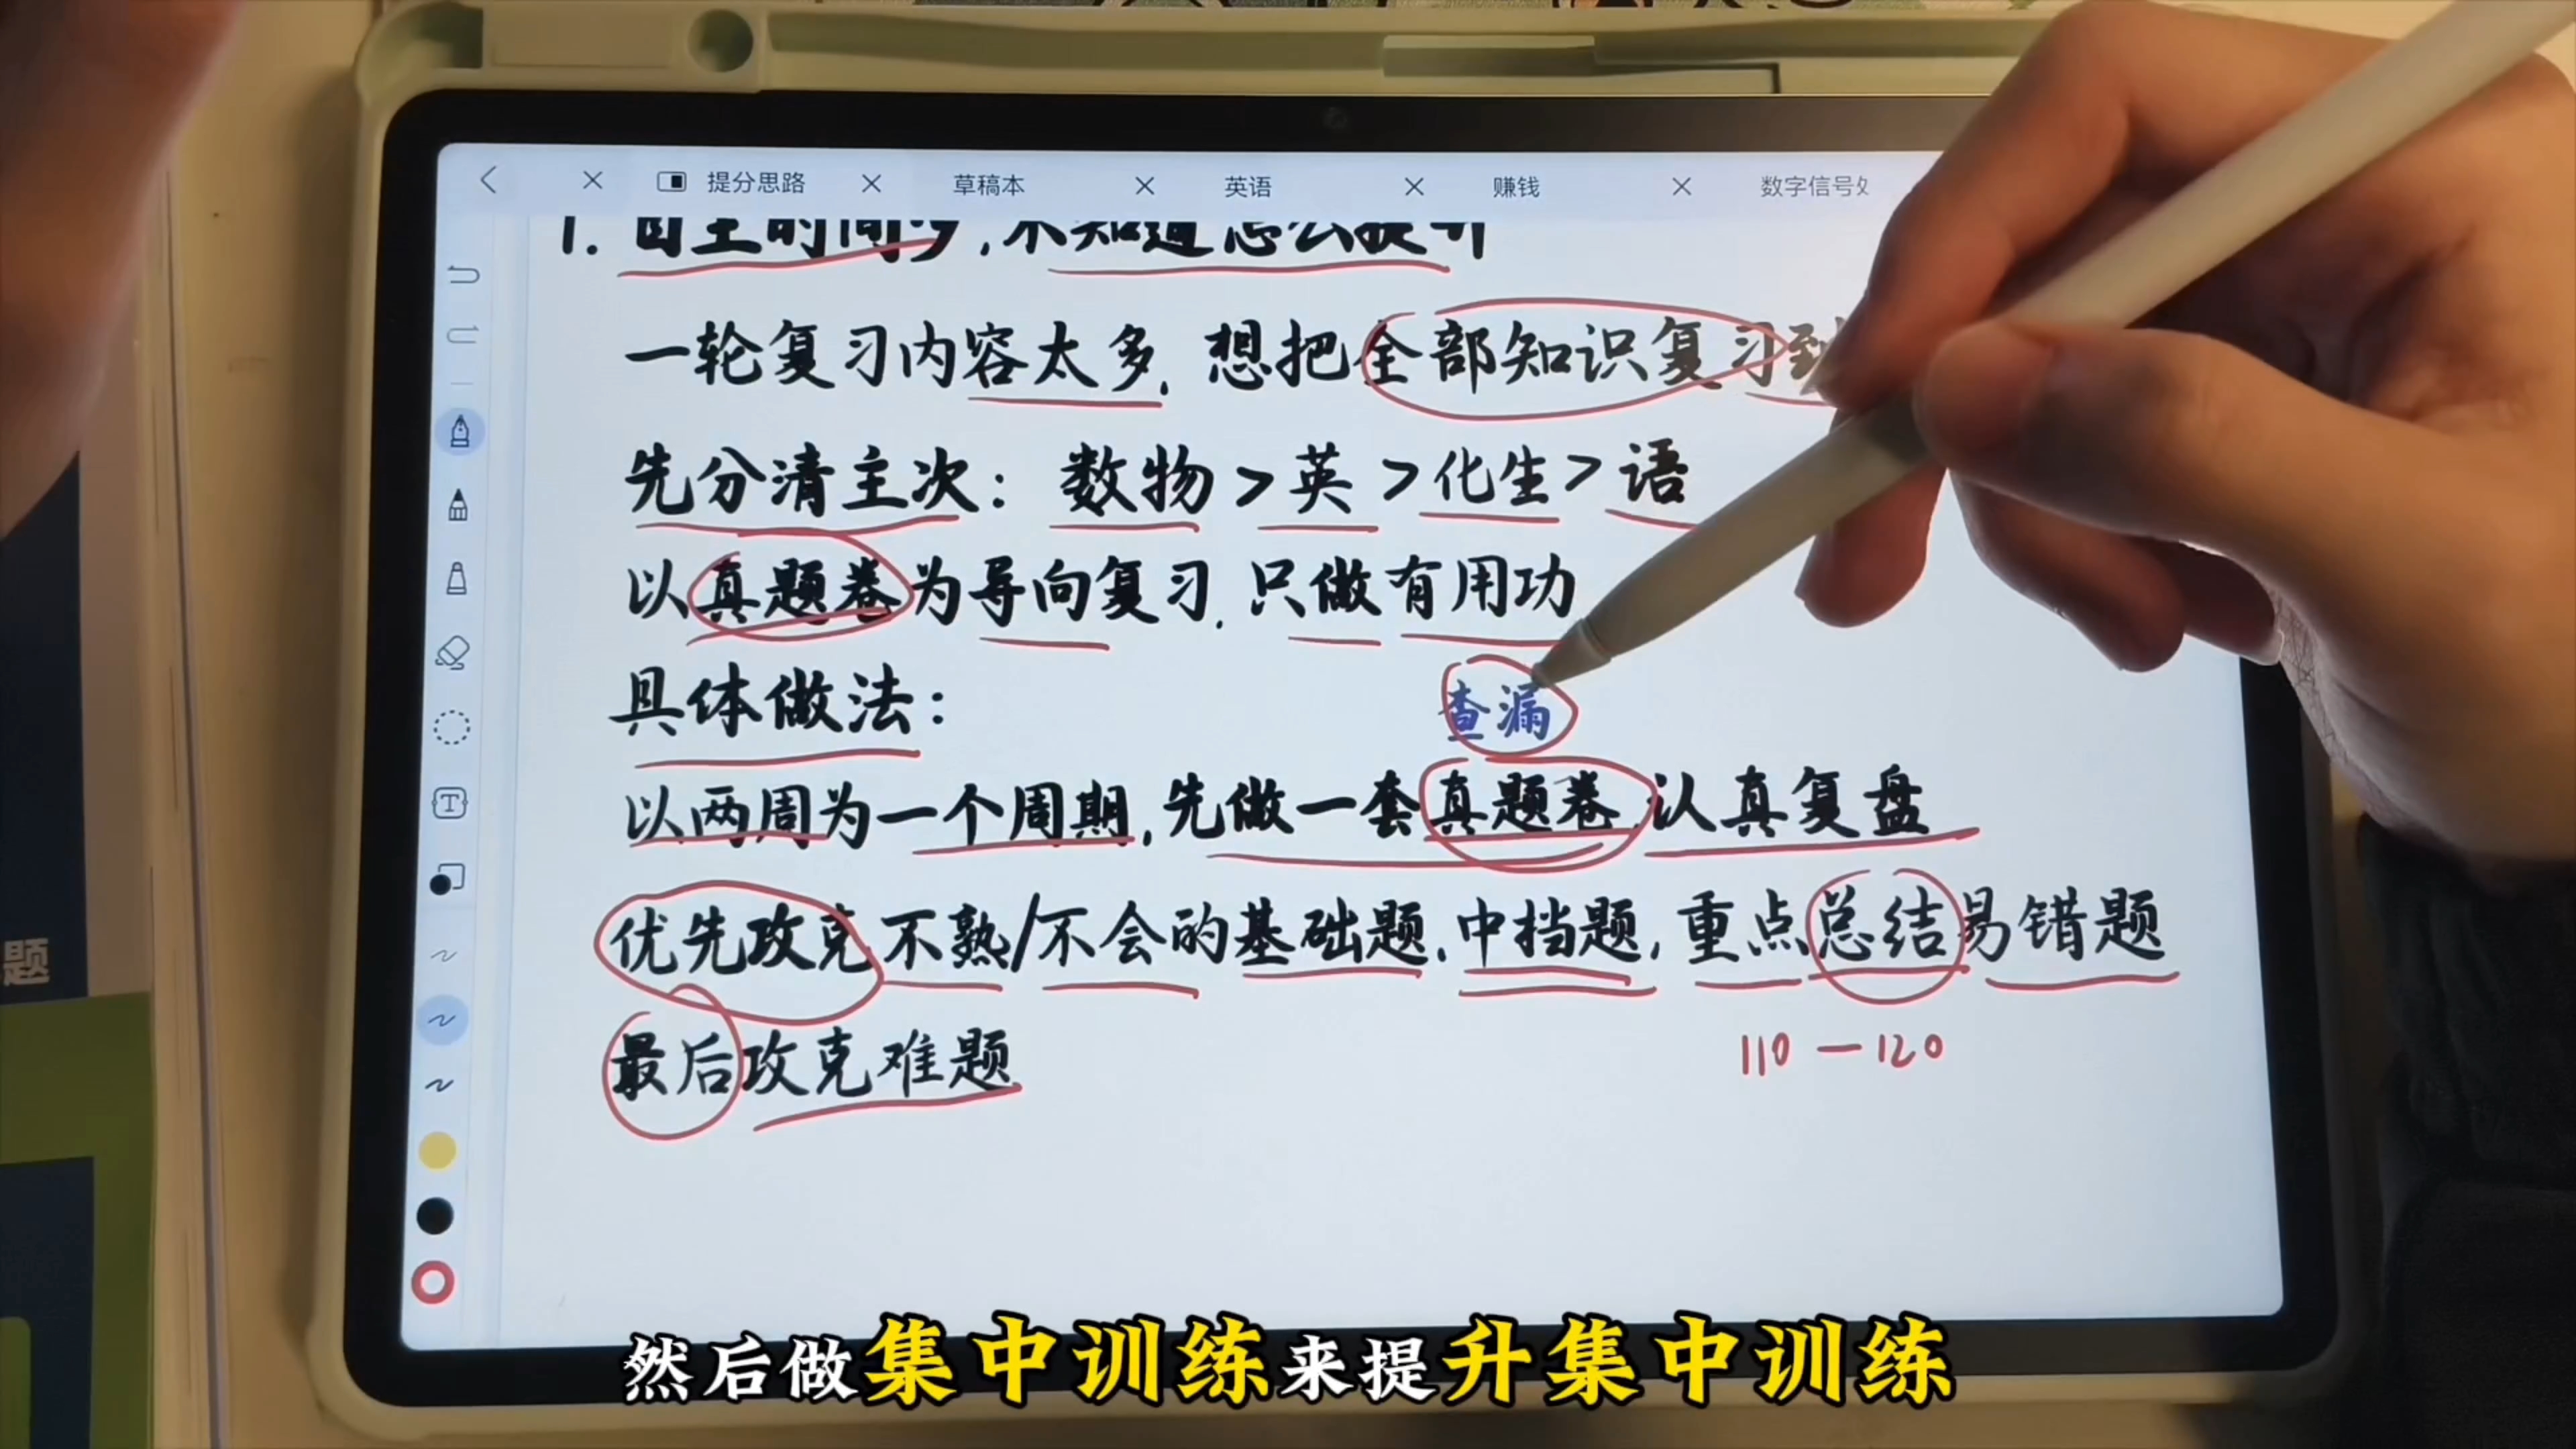 提分思路 草稿本 英语 赚钱 数字信号
1. 自主时间少,不知道怎么提升
一轮复习内容太多, 想把全部知识复习到
先分清主次: 数物>英>化生>语
以真题卷为导向复习, 只做有用功
具体做法:
查漏
以两周为一个周期,先做一套真题卷,认真复盘
优先攻克不熟/不会的基础题,中挡题,重点总结易错题
110—120
最后攻克难题
题
然后做集中训练来提升集中训练